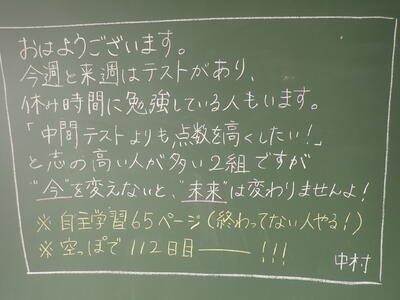 おはようございます。
今週と来週はテストがあり、
休み時間に勉強している人もいます。
「中間テストよりも点数を高くしたい!」
と志の高い人が多い2組ですが
"今"を変えないと、"未来"は変わりませんよ!
※自主学習65ページ(終わってない人やる!)
※空っぽで112日目――!!!
中村